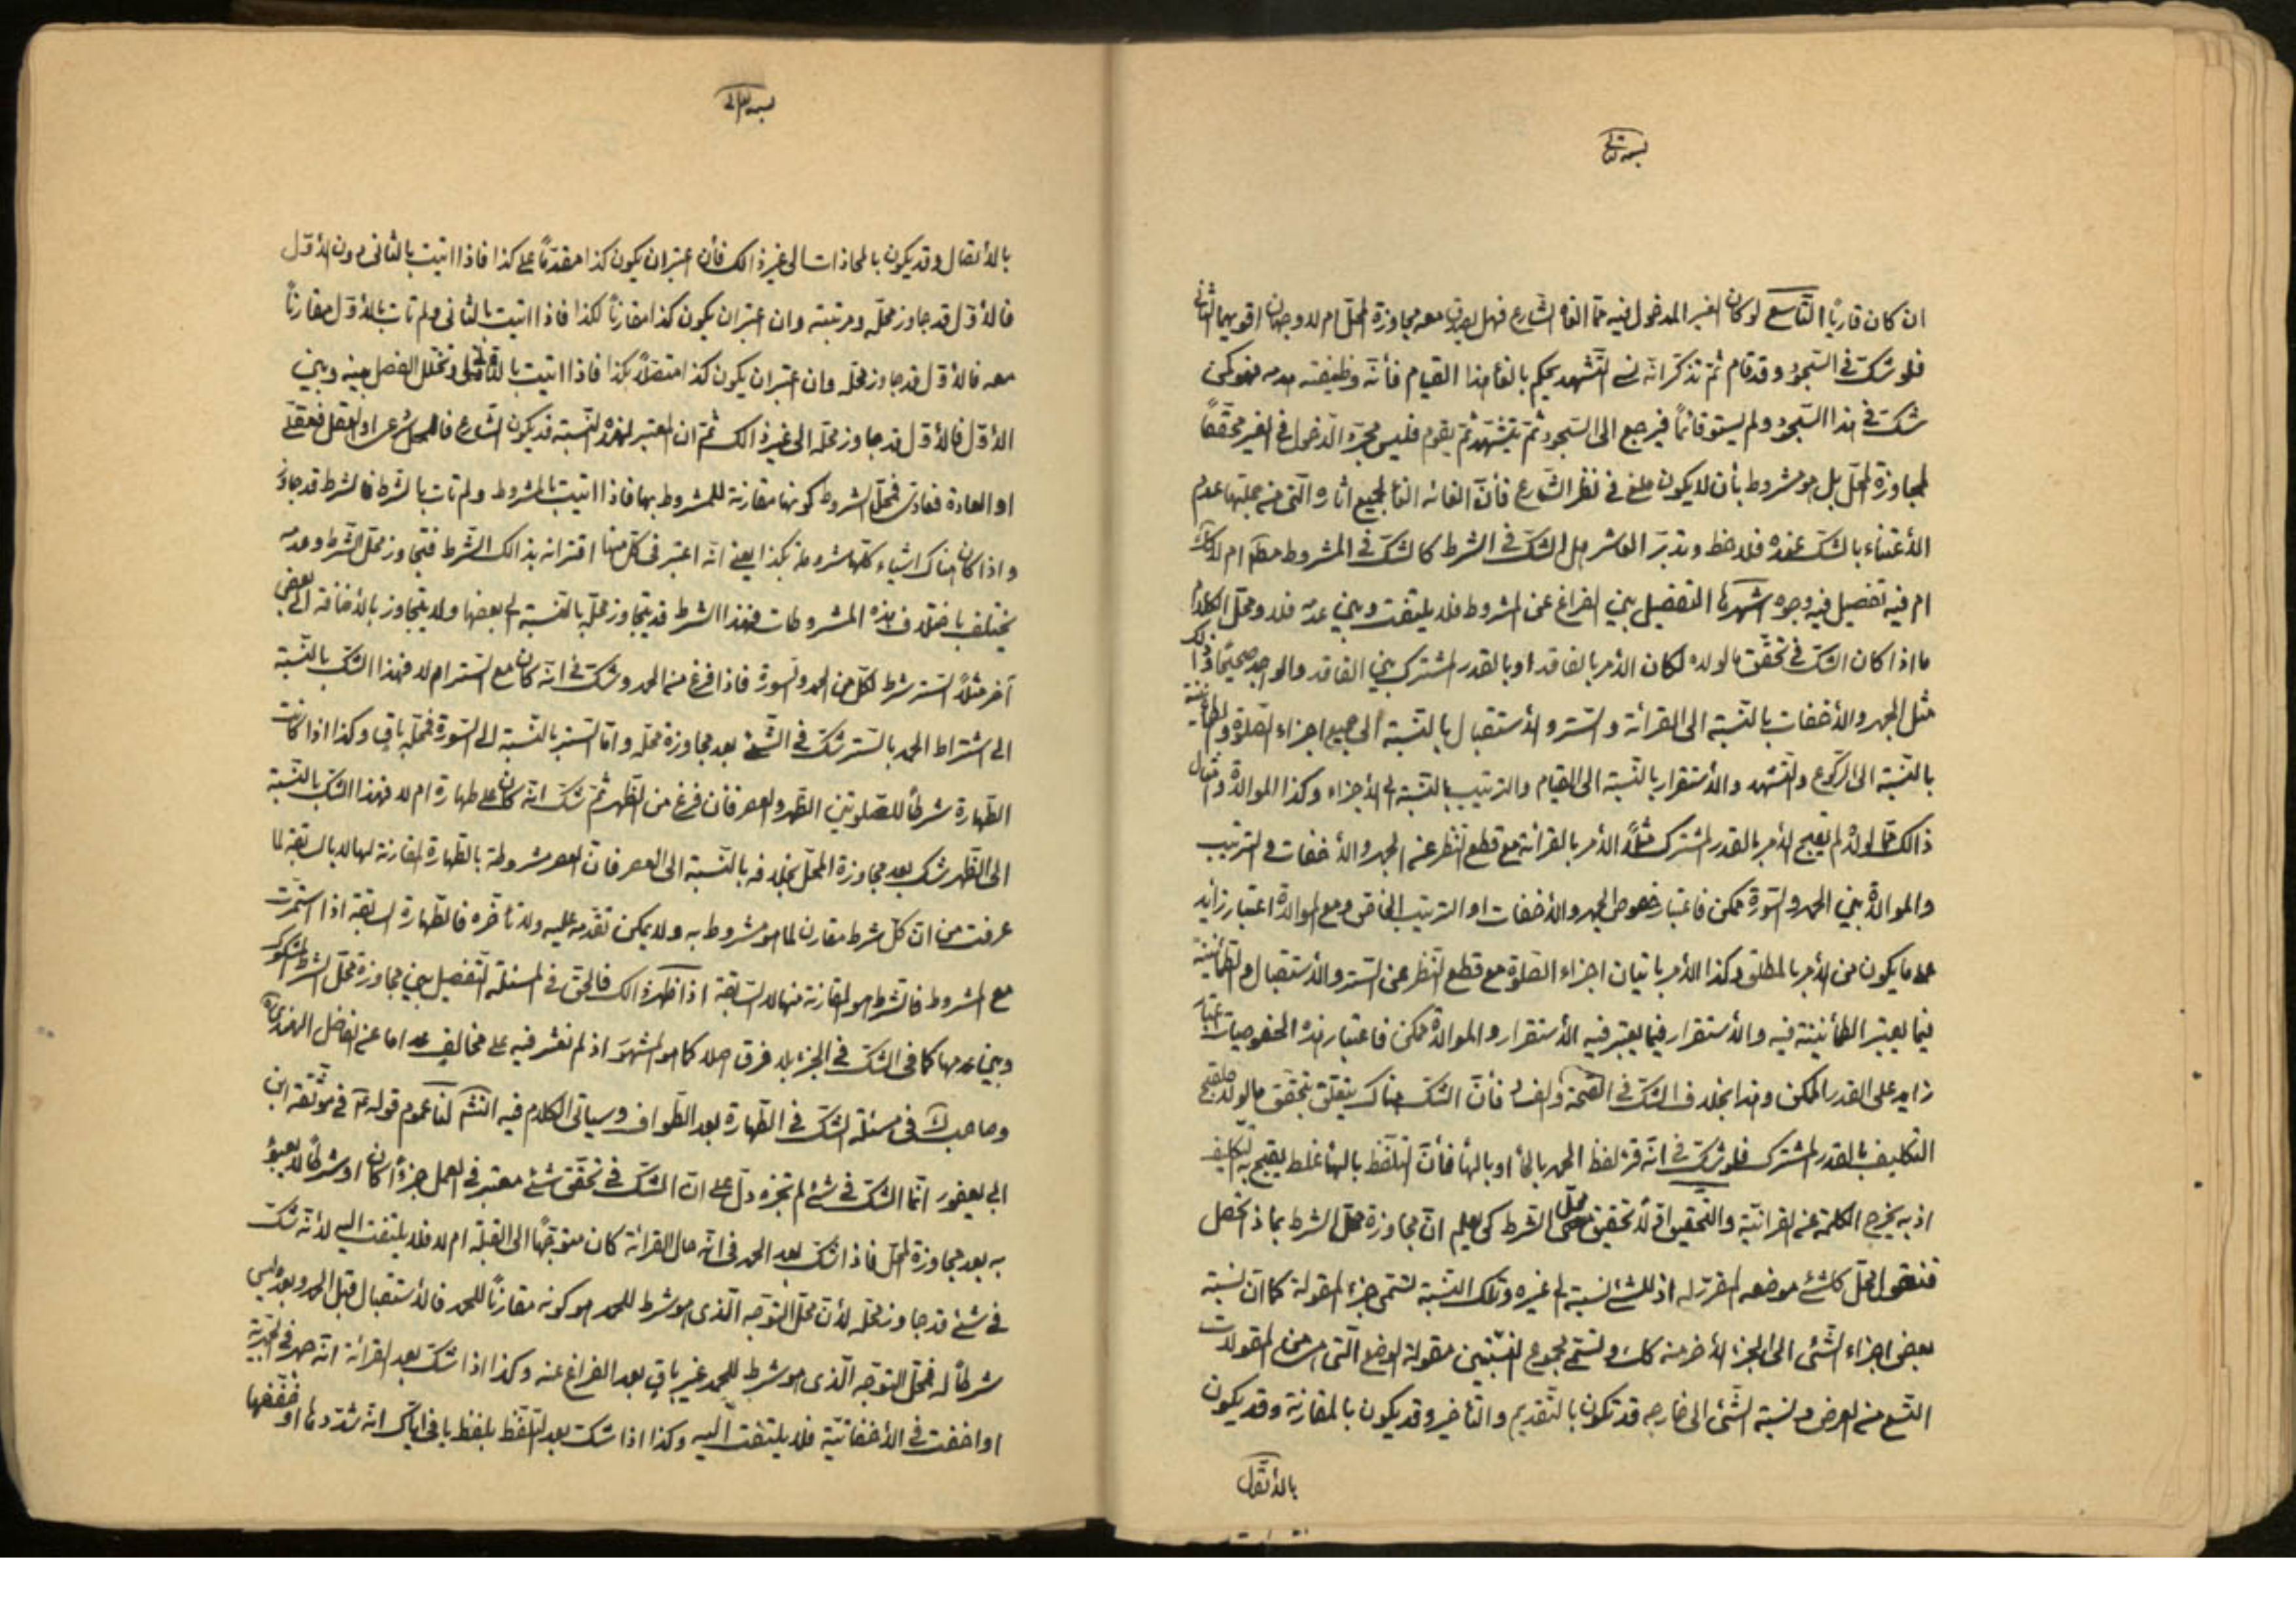 بسمه تعالى
ان كان قاريًا التاسع لو كان الغير المدخول فيه ممّا الغاه الشارع فهل يصدق معه مجاوزة المحل ام لا وجهان اقويهما الثانى
فلو شكّ فى السّجود وقد قام ثمّ تذكّر انّه نسى التّشهد يحكم بالغاء هذا القيام فأنّه وظيفته هدمه فهو كمن
شكّ فى هذا السّجود ولم يستو قائماً فيرجع الى السّجود ثمّ يتشهّد ثمّ يقوم فليس مجرّد الدّخول فى الغير محقّقاً
لمجاوزة المحلّ بل هو مشروط بأن لا يكون ملغى فى نظر الشّارع فأنّ الغائه الغاء لجميع اثاره الّتى من جملتها عدم
الأعتناء بالشكّ عنده فلاحظ وتدبّر العاشر هل الشكّ فى الشرط كالشكّ فى المشروط مطم ام لا كك
ام فيه تفصيل فيه وجوه اشهرها التفصيل بين الفراغ عن المشروط فلا يلتفت وبين عدمه فلا ومحلّ الكلام
ما اذا كان الشكّ فى تحقّق ما لولاه لكان الأمر بالفاقد او بالقدر المشترك بين الفاقد والواجد صحيحًا وذلك
مثل الجهر والأخفات بالنّسبة الى القرائة والسّتر والأستقبال بالنّسبة الى جميع اجزاء الصّلوة والطمأنينة
بالنّسبة الى الرّكوع والتّشهد والأستقرار بالنّسبة الى القيام والترتيب بالنّسبة الى الأجزاء وكذا الموالاة وامثال
ذالك ممّا لولاه لم يقبح الأمر بالقدر المشترك مثلاً الأمر بالقرائة مع قطع النّظر عن الجهر والأخفات والترتيب
والموالاة بين الحمد والسّورة ممكن فاعتبار خصوص الجهر والأخفات او الترتيب الخاص ومع الموالاة اعتبار زايد
عما يكون من الأمر بالمطلق وكذا الأمر باتيان اجزاء الصّلوة مع قطع النّظر عن السّتر والأستقبال والطمأنينة
فيما يعتبر الطمأنينة فيه والأستقرار فيما يعتبر فيه الأستقرار والموالاة ممكن فاعتبار هذه الخصوصيات اعتبار
زايد على القدر الممكن وهذا بخلاف الشكّ فى الصّحة والفساد فأنّ الشكّ هناك يتعلّق بتحقّق ما لولاه لقبح
التكليف بالقدر المشترك فلو شكّ فى انّه قرء لفظ الحمد بالحاء او بالهاء فأنّ التلفّظ بالهاء غلط يقبح به التكليف
اذ به يخرج الكلمة عن القرانيّة والتّحقيق اوّلاً تحقيق محلّ الشرط كى يعلم انّ مجاوزة محلّ الشرط بماذا تحصل
فنقول المحلّ كلّشئ موضعه المقرّر له اذ للشئ نسبة الى غيره وتلك النّسبة تسمّى جزء المقولة كما انّ نسبة
بعض اجزاء الشّئى الى الجزء الأخر منه كك وتسمّى مجموع النسبتين مقولة الوضع الّتى هى من المقولات
التّسع من العرض ونسبة الشّئى الى خارجه قد تكون بالتّقديم والتأخير وقد يكون بالمقارنة وقد يكون
بالأتّصال
بسمه تعالى
بالأتصال وقد يكون بالمحاذات الى غير ذالك فأن اعتبر ان يكون كذا مقدّماً على كذا فاذا اتيت بالثانى دون الأوّل
فالأوّل قد جاوز محلّه ومرتبته وان اعتبر ان يكون كذا مقارناً لكذا فاذا اتيت بالثانى ولم تات بالأوّل مقارناً
معه فالأوّل قد جاوز محلّه وان اعتبر ان يكون كذا متصلاً بكذا فاذا اتيت بالثانى وتخلّل الفصل بينه وبين
الأوّل فالأوّل قد جاوز محلّه الى غير ذالك ثمّ انّ المعتبر لهذه النّسبة قد يكون الشّارع فالمحلّ شرعى او العقل فعقلى
او العادة فعادى فمحلّ الشروط كونها مقارنة للمشروط بها فاذا اتيت بالمشروط ولم تات بالشرط فالشرط قد جاوز
واذا كان هناك اشياء كلّها مشروطة بكذا يعنى انّه اعتبر فى كلّ منها اقترانه بذالك الشّرط فتجاوز محلّ الشّرط وعدمه
يختلف باختلاف هذه المشروطات فهذا الشرط قد يتجاوز محلّه بالنّسبة الى بعضها ولا يتجاوز بالأضافة الى بعض
آخر مثلاً السّتر شرط لكلّ من الحمد والسّورة فاذا فرغ من الحمد وشكّ فى انّه كان مع السّتر ام لا فهذا الشكّ بالنّسبة
الى اشتراط الحمد بالسّتر شكّ فى الشّئ بعد مجاوزة محلّه وامّا السّتر بالنّسبة الى السّورة فمحلّه باقٍ وكذا اذا كانت
الطّهارة شرطاً للصّلوتين الظّهر والعصر فأن فرغ من الظّهر ثمّ شكّ انّه كان على طهارة ام لا فهذا الشكّ بالنّسبة
الى الظّهر شكّ بعد مجاوزة المحلّ بخلافه بالنّسبة الى العصر فأنّ العصر مشروطة بالطّهارة المقارنة لها لا بالسّابقة لما
عرفت من انّ كلّ شرط مقارن لما هو مشروط به ولا يمكن تقدّمه عليه ولا تأخّره فالطّهارة السّابقة اذا استمرّت
مع المشروط فالشّرط هو المقارنة منها لا السّابقة اذا ظهر ذالك فالحقّ فى المسئلة التّفصيل بين مجاوزة محلّ الشرط المشكوك
وبين عدمها كما فى الشكّ فى الجزء بلا فرق اصلا كما هو المشهور اذ لم نعثر فيه على مخالف عدا ما عن الفاضل الهندى
وصاحب ك فى مسئلة الشكّ فى الطّهارة بعد الطّواف وسياتى الكلام فيه انش لنا عموم قوله ع فى موثّقة ابن
ابى يعفور انّما الشكّ فى شئ لم تجزه دلّ على انّ الشكّ فى تحقّق شئ معتبر فى العمل جزءاً كان او شرطاً لا يعبؤ
به بعد مجاوزة المحلّ فاذا شكّ بعد الحمد فى انّه حال القرائة كان متوجّهًا الى القبلة ام لا فلا يلتفت اليه لأنّه شكّ
فى شئ قد جاوز محلّه لأنّ محلّ التّوجّه الّذى هو شرط للحمد هو كونه مقارناً للحمد فالأستقبال قبل الحمد وبعده ليس
شرطاً له فمحلّ التوجّه الّذى هو شرط للحمد غير باقٍ بعد الفراغ عنه وكذا اذا شكّ بعد القرائة انّه جهر فى الجهرية
او اخفت فى الأخفاتيّة فلا يلتفت اليه وكذا اذا شكّ بعد التلفّظ بلفظ يا فى ايّاك انّه شدّدها او خفّفها